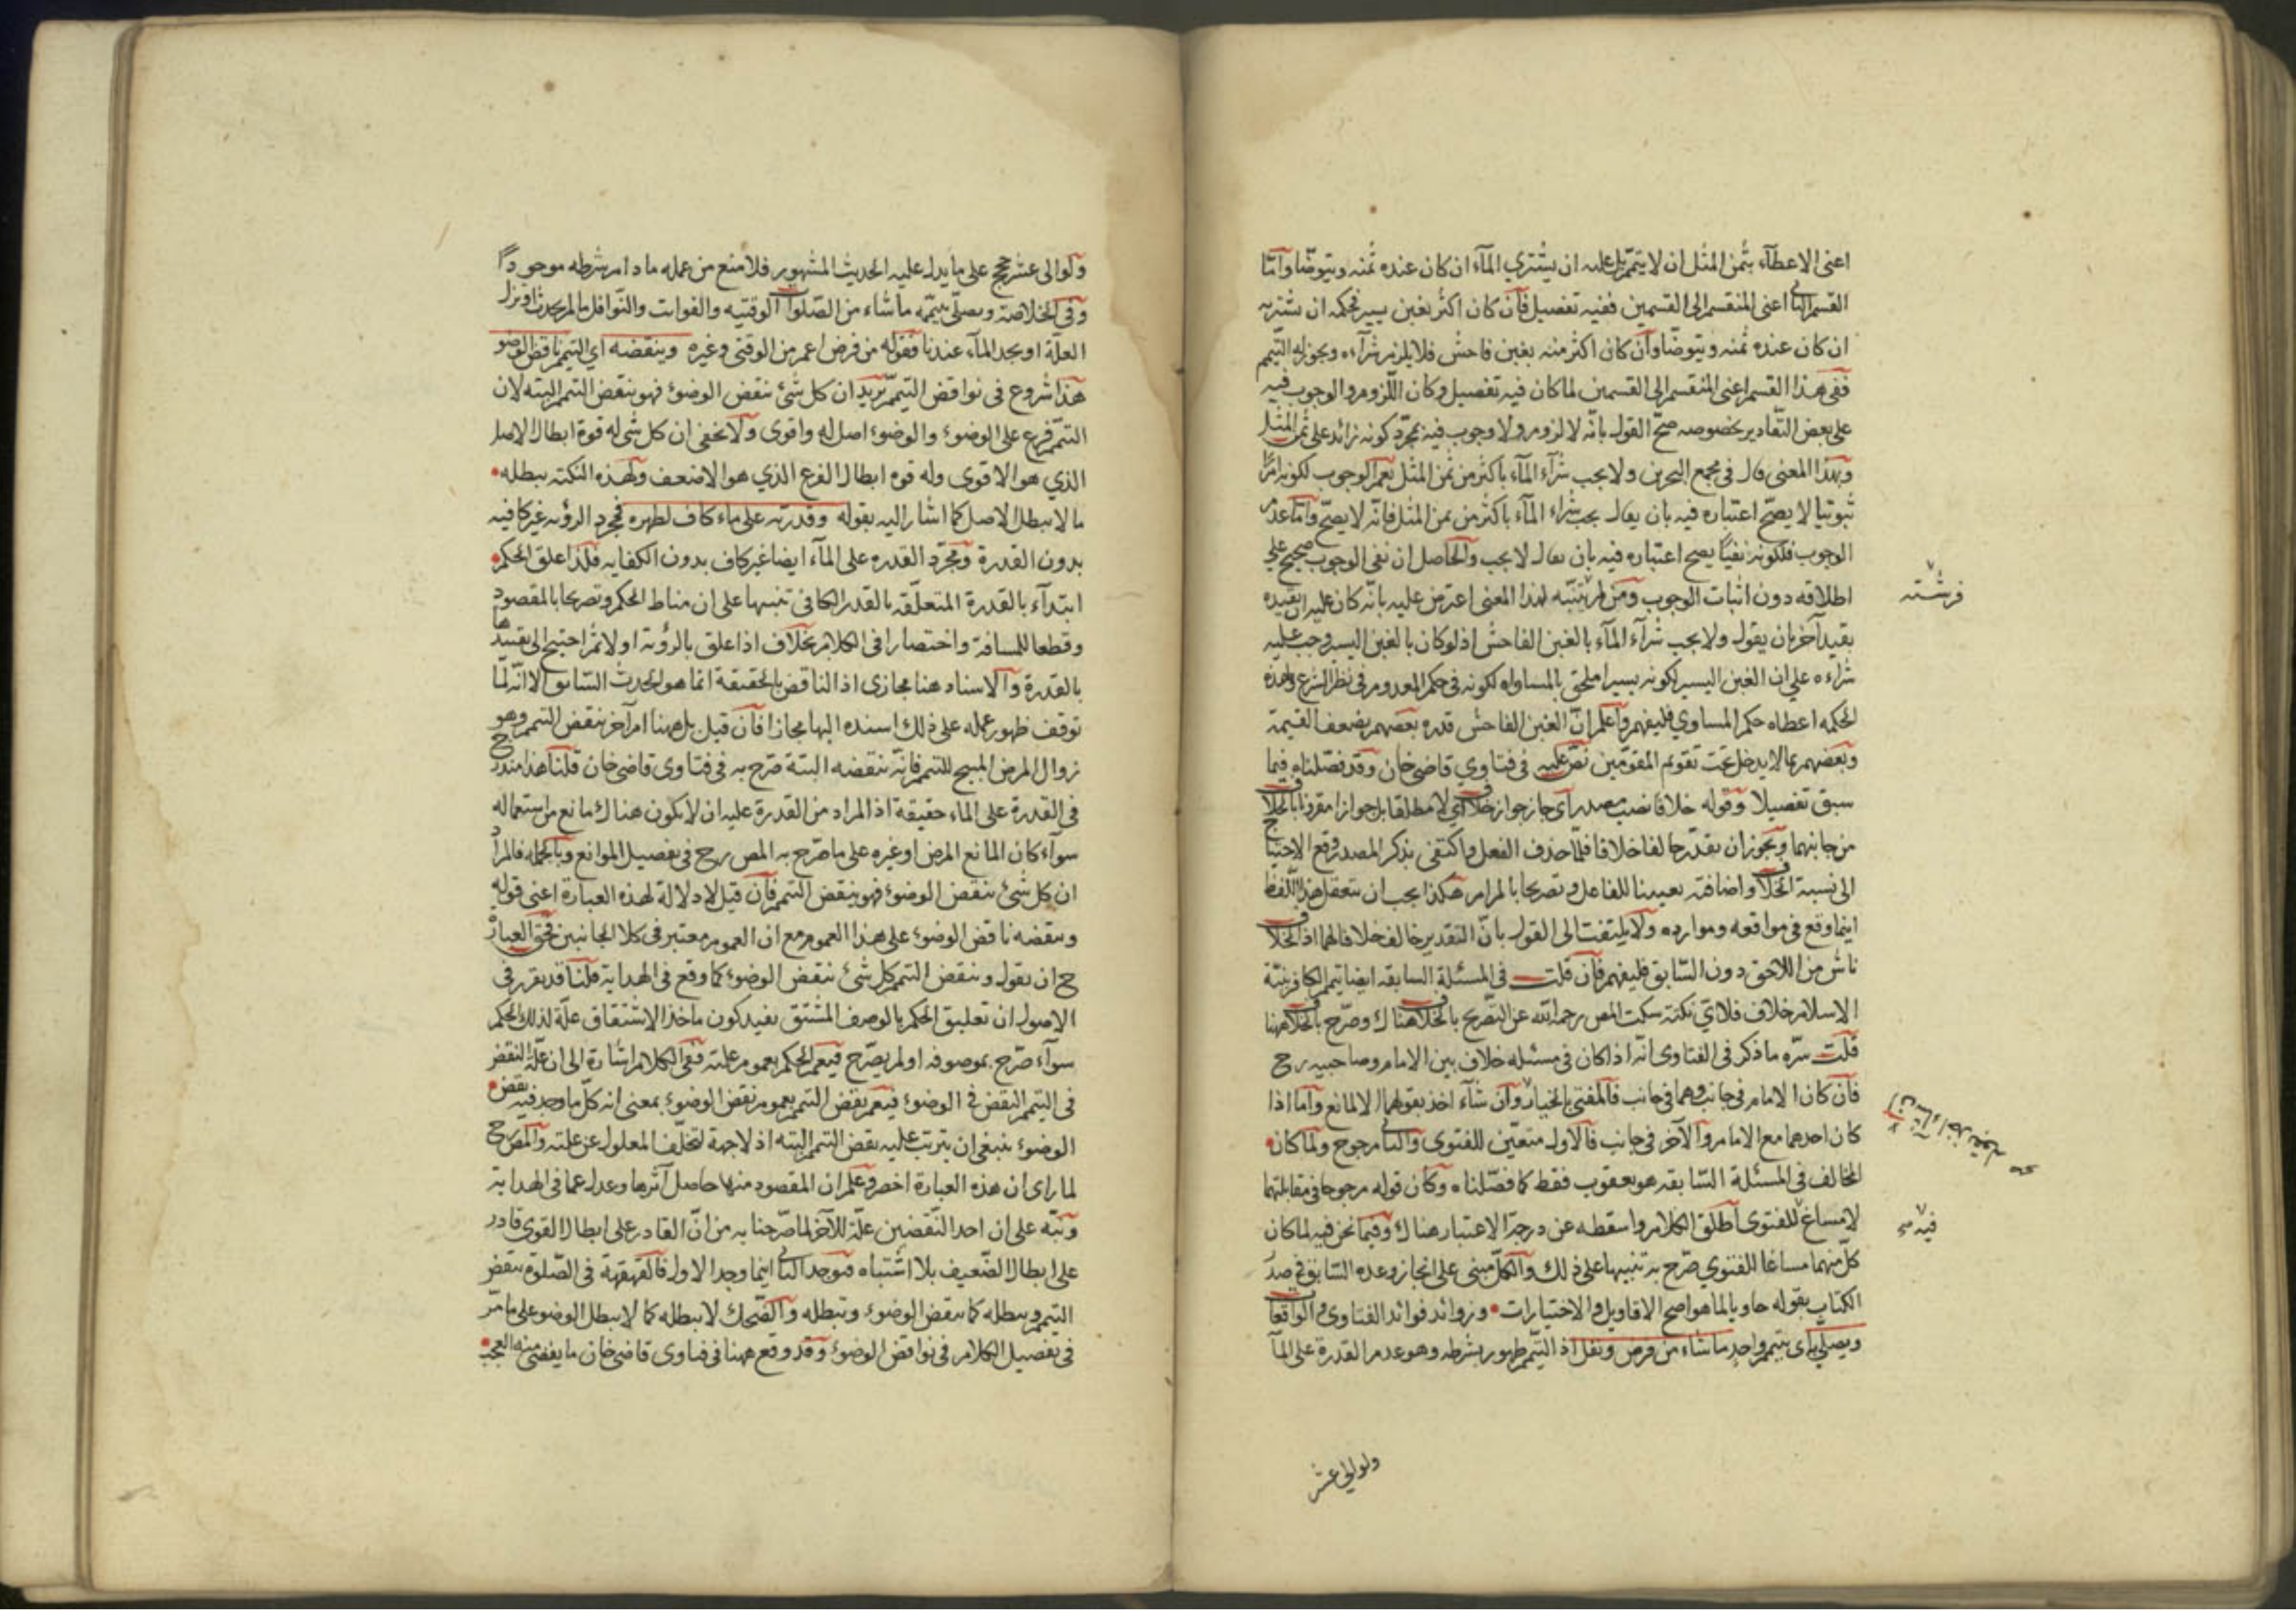 اعنى الاعطآء بثمن المثل ان لا يتيمّم بل عليه ان يشتري المآء ان كان عنده ثمنه ويتوضّا وآمّا
القسم الثانى اعنى المنقسم الى القسمين ففيه تفصيل فآن كان اكثر بغبن يسير فحكمه ان يشتريه
ان كان عنده ثمنه ويتوضّا وآن كان اكثر منه بغبن فاحش فلا يلزمه شرآءه ويجوز له التيمّم
ففى هذا القسم اعنى المنقسم الى القسمين لما كان فيه تفصيل وكان اللّزوم والوجوب فيه
على بعض التّقادير بخصوصه صحّ القول بانّه لا لزوم ولا وجوب فيه بمجرّد كونه زائد على ثمن المثل
وبهذا المعنى قال فى مجمع البحرين ولا يجب شرآء المآء باكثر من ثمن المثل نعم الوجوب لكونه امرًا
ثبوتيا لا يصحّ اعتباره فيه بان يقال يجب شراء المآء باكثر من ثمن المثل فانّه لا يصحّ وآمّا عدم
الوجوب فلكونه نفيًا يصح اعتباره فيه بان يقال لا يجب والحاصل ان نفى الوجوب صحيح على
اطلاقه دون اثبات الوجوب ومن لم يتنبّه لهذا المعنى اعترض عليه بانّه كان عليه ان يقيده
فرشته
بقيد آخر بان يقول ولا يجب شرآء المآء بالغبن الفاحش اذ لو كان بالغبن اليسير وجب عليه
شراءه على ان الغبن اليسير لكونه يسيرا ملحق بالمساواه لكونه فى حكم المعدوم فى نظر الشرع ولهذه
الحكمه اعطاه حكم المساوي فليفهم وآعلم انّ الغبن الفاحش قدره بعضهم بضعف القيمة
وبعضهم بما لا يدخل تحت تقويم المقوّمين نصّ عليه فى فتاوي قاضى خان وقد فصّلناه فيما
سبق تفصيلا وقوله خلافا نصب مصدر آى جاز جواز خلاف اي لا مطلقا بل جوازا مقرونا بالخلاف
من جانبهما ويجوز ان يقدّر خالفا خلافا فلّما حذف الفعل واكتفى بذكر المصدر وقع الاحتياج
الى نسبة الخلاف واضافته تعيينا للفاعل وتصريحا بالمرام هكذا يجب ان يتعقل هذا اللّفظ
اينما وقع فى مواقعه وموارده ولا يلتفت الى القول بانّ التقدير خالف خلافا لهما اذ الخلاف
ناش من اللاحق دون السّابق فليفهم فآن قلت فى المسئلة السابقه ايضا تيمم الكافر بنيّة
الاسلام خلاف فلاي نكتة سكت المص رحمه الله عن التّصريح بالخلاف هناك وصرّح بالخلاف ههنا
قلت سرّه ما ذكر فى الفتاوى انّه اذا كان فى مسئله خلاف بين الامام وصاحبيه رح
فآن كان الامام فى جانب وهما فى جانب فالمفتى بالخيار وآن شآء اخذ بقولهما الا لمانع وآما اذا
كان احدهما مع الامام والآخر فى جانب فالاول متعيّن للفتوى والثانى مرجوح ولما كان
المخالف فى المسئلة السّابقه هو يعقوب فقط كما فصّلناه وكان قوله مرجوحا فى مقابلتهما
لا مساغ للفتوى اطلق الكلام واسقطه عن درجة الاعتبار هناك وفيما نحن فيه لما كان
فيه صح
كلّ منهما مساغا للفتوي صرّح به تنبيها على ذلك والكلّ مبنى على انجاز وعده السّابق فى صدر
الكتاب بقوله حاويا لما هو اصح الاقاويل والاختيارات وزوائد فوائد الفتاوى والواقعات
ويصلّى اى بتيمم واحد ما شاء من فرض ونفل اذ التيّمم طهور بشرطه وهو عدم القدرة على المآ
ولو الى عشر
ولو الى عشر حجج على ما يدل عليه الحديث المشهور فلا منع من عمله ما دام شرطه موجودًا
وفى الخلاصة ويصلّى بتيمّمه ما شاء من الصّلوات الوقتيه والفوائت والنّوافل ما لم يحدث او تزل
العلّة او يجد المآء عندنا فقوله من فرض اعم من الوقتى وغيره وينقضه اي التيمم ناقض الوضوء
هذا شروع فى نواقض التيمّم يريد ان كل شئ ينقض الوضوء فهو ينقض التيمم البته لان
التيمّم فرع على الوضوء والوضوء اصل له واقوى ولا يخفى ان كل شئ له قوة ابطال الاصل
الذي هو الاقوى وله قوة ابطال الفرع الذي هو الاضعف ولهذه النكته يبطله
ما لا يبطل الاصل كما اشار اليه بقوله وقدرته على ماء كاف لطهره فمجرد الرؤيه غير كافيه
بدون القدرة ومجرّد القدره على المآء ايضا غير كاف بدون الكفايه فلذا علق الحكم
ابتدآء بالقدرة المتعلّقه بالقدر الكافى تنبيها على ان مناط الحكم وتصريحا بالمقصود
وقطعا للمسافة واختصارا فى الكلام بخلاف اذا علق بالرؤية اولا ثم احتيج الى تقييدها
بالقدرة والاسناد هنا مجازى اذ الناقض بالحقيقة انما هو الحدث السّابق الا انّه لمّا
توقف ظهور عمله على ذلك اسنده اليها مجازا فآن قيل بل ههنا امر آخر ينقض التيمم وهو
زوال المرض المبيح للتيمم فانّه ينقضه البتة صرّح به فى فتاوى قاضى خان قلنا هذا مندرج
فى القدرة على الماء حقيقة اذ المراد من القدرة عليه ان لا يكون هناك مانع من استعماله
سوآء كان المانع المرض او غيره على ما صرّح به المص رح فى تفصيل الموانع وبالجمله فالمراد
ان كل شئ ينقض الوضوء فهو ينقض التيمم فآن قيل لا دلالة لهذه العبارة اعنى قوله
وينقضه ناقض الوضوء على هذا العموم مع ان العموم معتبر فى كلا الجانبين فحق العبارة
ح ان يقول وينقض التيمم كل شئ ينقض الوضوء كما وقع فى الهداية قلنا قد تقرر فى
الاصول ان تعليق الحكم بالوصف المشتق يفيد كون ماخذ الاشتقاق علّة لذلك الحكم
سوآء صرّح بموصوفه او لم يصرّح فيعم الحكم بعموم علته ففى الكلام اشارة الى ان علّة النقض
فى التيمم النقض فى الوضوء فيعم نقض التيمم بعموم نقض الوضوء بمعنى انه كلّ ما وجد فيه نقض
الوضوء ينبغى ان يترتب عليه نقض التيمم البته اذ لا جهة لتخلّف المعلول عن علته والمص رح
لما راى ان هذه العبارة اخصر وعلم ان المقصود منها حاصل آثرها وعدل عما فى الهداية
ونبّه على ان احد النّقضين علّة للآخر لما صرّحنا به من انّ القادر على ابطال القوى قادر
على ابطال الضّعيف بلا اشتباه فيوجد الثانى اينما وجد الاول فالقهقهة فى الصّلوة ينقض
التيمم ويبطله كما ينقض الوضوء ويبطله والضّحك لا يبطله كما لا يبطل الوضوء على ما مرّ
فى تفصيل الكلام فى نواقض الوضوء وقد وقع ههنا فى فتاوى قاضى خان ما يفضى منه العجب